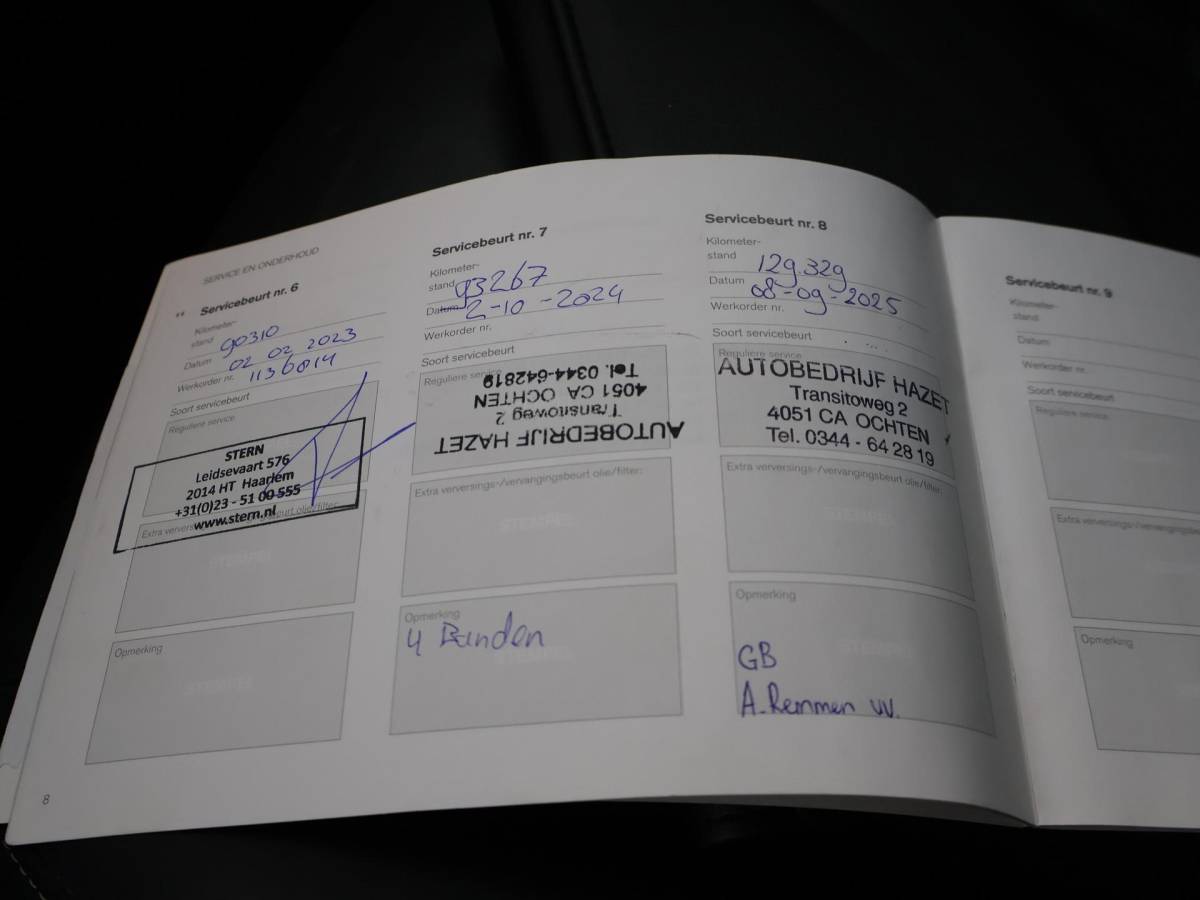 SERVICE EN ONDERHOUD
Servicebeurt nr. 6
Kilometer-
stand 90310
Datum 02 02 2023
Werkorder nr. 1136814
Soort servicebeurt
Reguliere service
STERN
Leidsevaart 576
2014 HT Haarlem
+31(0)23 - 51 00 555
www.stern.nl
Extra verversings-/vervangingsbeurt olie/filter:
STEMPEL
Opmerking
STEMPEL
8
Servicebeurt nr. 7
Kilometer-
stand 93267
Datum 2-10-2024
Werkorder nr.
Soort servicebeurt
Reguliere service
AUTOBEDRIJF HAZET
Transitoweg 2
4051 CA OCHTEN
Tel. 0344-642819
Extra verversings-/vervangingsbeurt olie/filter:
STEMPEL
Opmerking
4 Banden
STEMPEL
Servicebeurt nr. 8
Kilometer-
stand 129.329
Datum 08-09-2025
Werkorder nr.
Soort servicebeurt
Reguliere service
AUTOBEDRIJF HAZET
Transitoweg 2
4051 CA OCHTEN
Tel. 0344 - 64 28 19
Extra verversings-/vervangingsbeurt olie/filter:
STEMPEL
Opmerking
STEMPEL
GB
A. Remmen vv.
Servicebeurt nr. 9
Kilometer-
stand
Datum
Werkorder nr.
Soort servicebeurt
Reguliere service
Extra verversings-/vervangingsbeurt
Opmerking